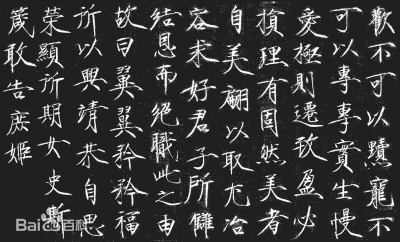 歡不可以黷寵不
可以專專實生慢
愛極則遷致盈必
損理有固然美者
自美翩以取尤冶
容求好君子所讎
結恩而絕職此之由
故曰翼翼矜矜福
所以興靖恭自思
榮顯所期女史斯
箴敢告庶姬
Bai百科